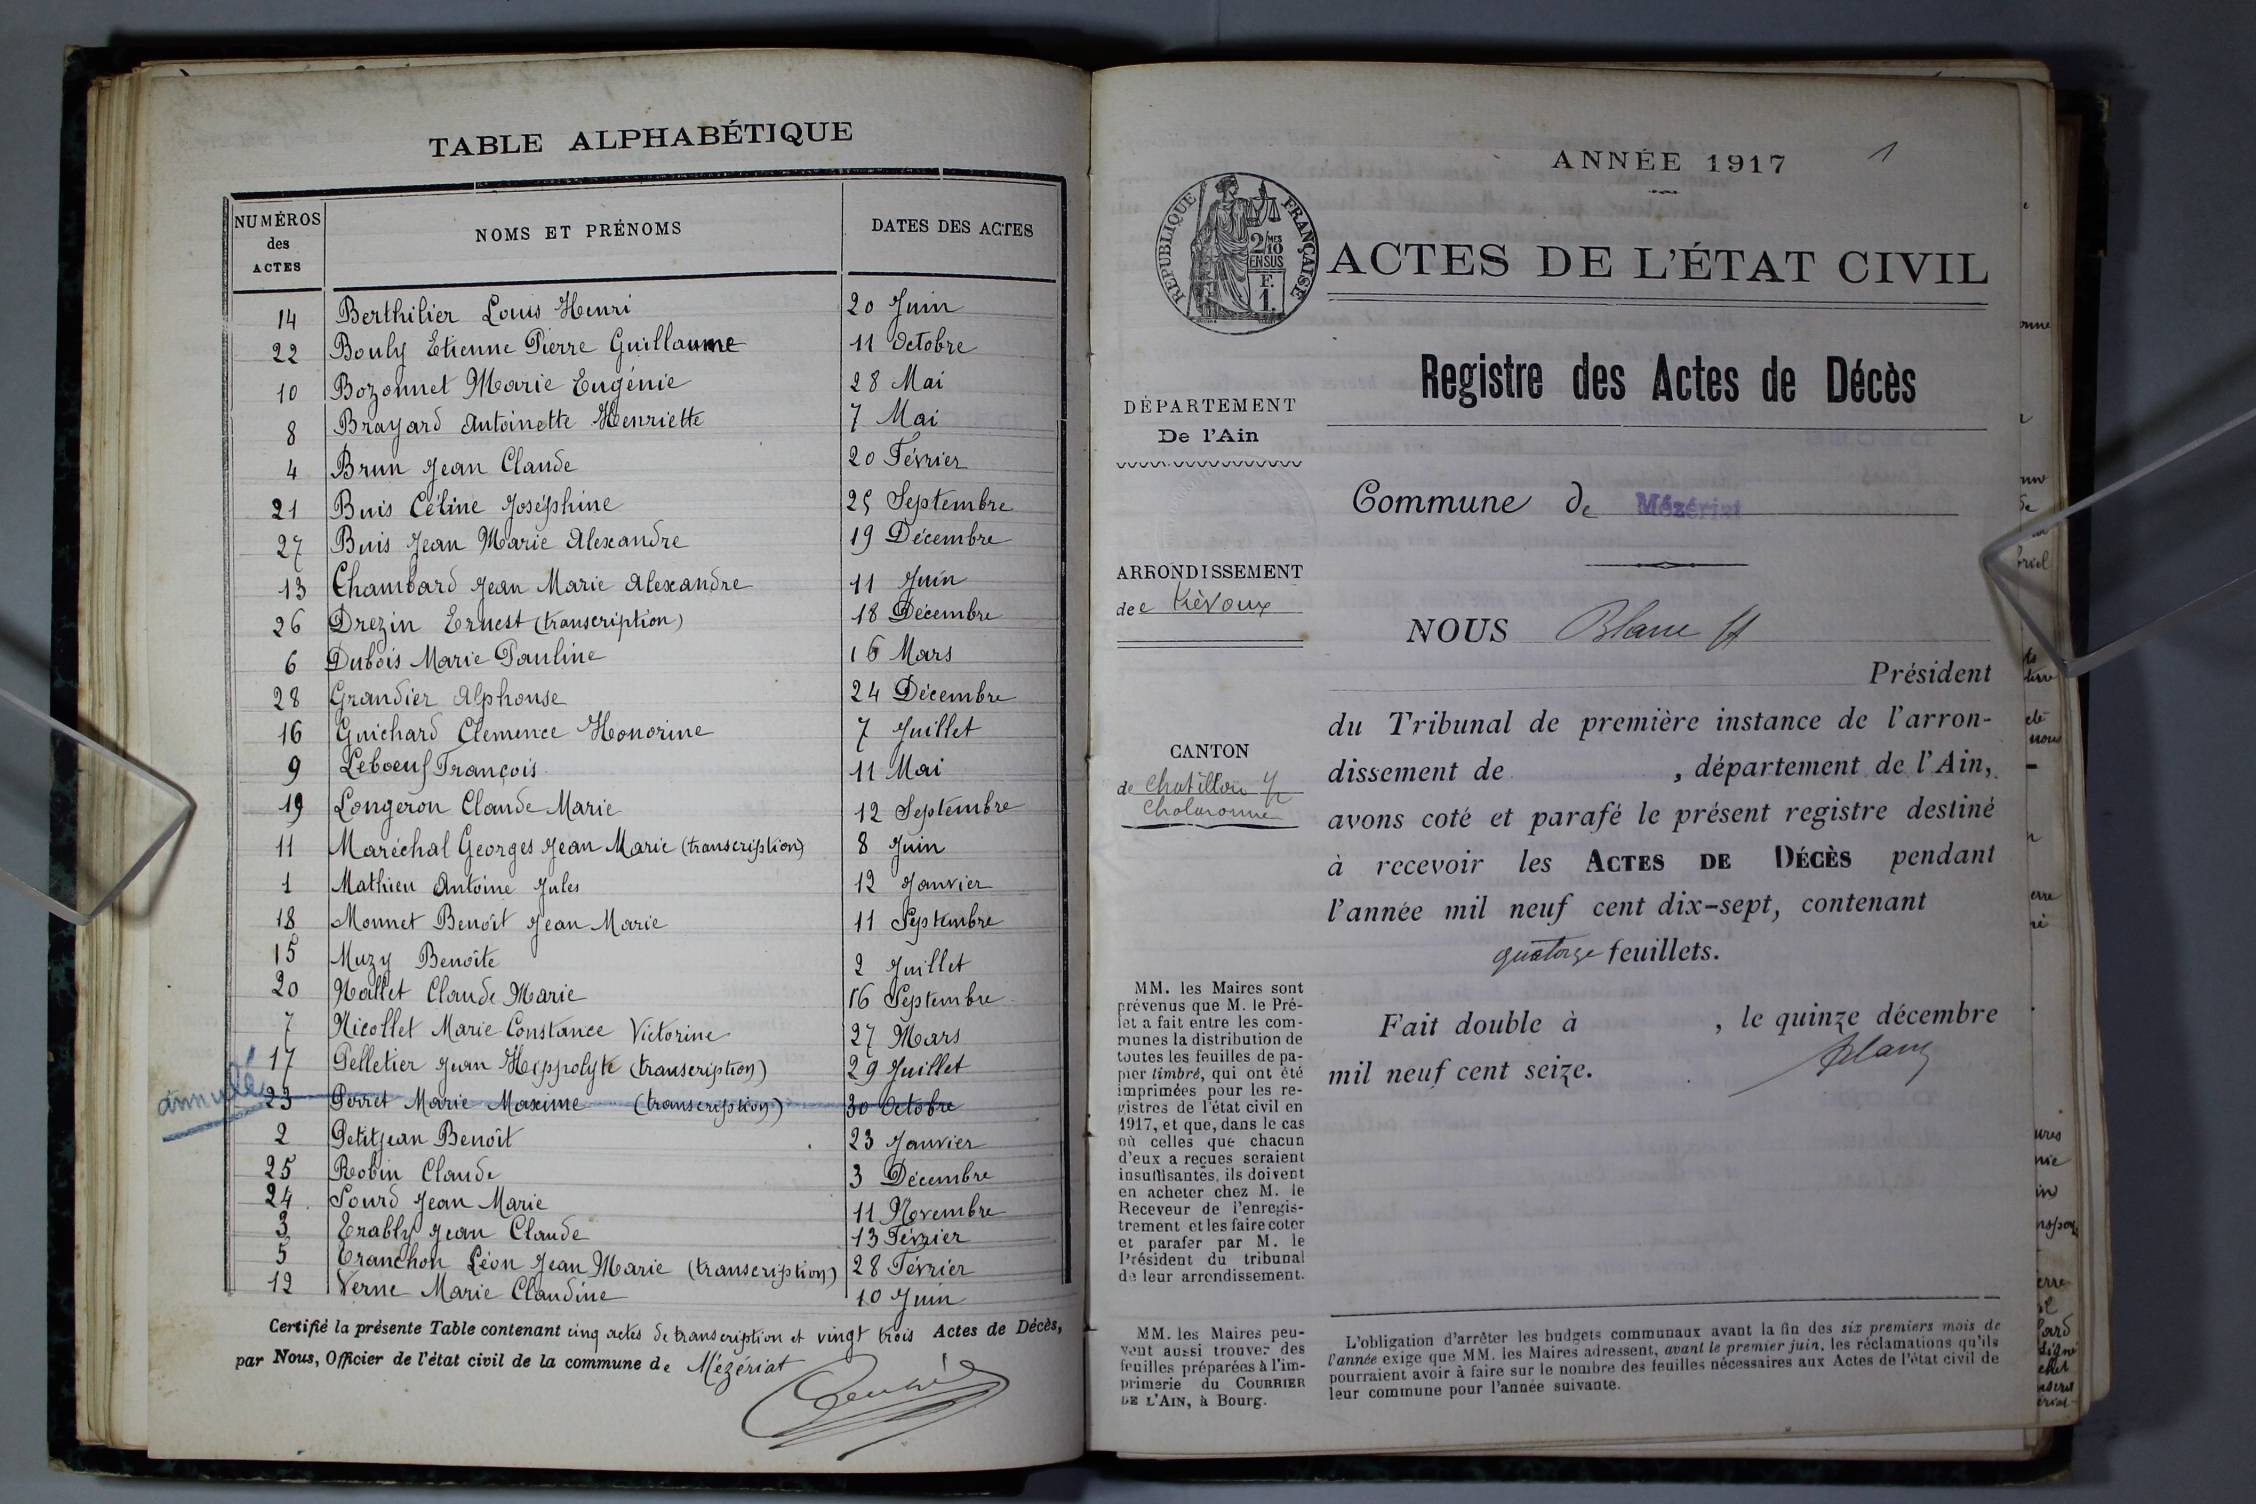 TABLE ALPHABÉTIQUE
NUMÉROS des ACTES NOMS ET PRÉNOMS DATES DES ACTES
14 Berthilier Louis Henri 20 Juin
22 Bouly Etienne Pierre Guillaume 11 Octobre
10 Bozonnet Marie Eugénie 28 Mai
8 Brayard Antoinette Henriette 7 Mai
4 Brun Jean Claude 20 Février
21 Buis Céline Joséphine 25 Septembre
27 Buis Jean Marie Alexandre 19 Décembre
13 Chambard Jean Marie Alexandre 11 Juin
26 Drezin Ernest (transcription) 18 Décembre
6 Dubois Marie Pauline 16 Mars
28 Grandier Alphonse 24 Décembre
16 Guichard Clemence Honorine 7 Juillet
9 Leboeuf François 11 Mai
19 Longeron Claude Marie 12 Septembre
11 Maréchal Georges Jean Marie (transcription) 8 Juin
1 Mathieu Antoine Jules 12 Janvier
18 Monnet Benoît Jean Marie 11 Septembre
15 Muzy Benoîte 2 Juillet
20 Nallet Claude Marie 16 Septembre
7 Nicollet Marie Constance Victorine 27 Mars
17 Pelletier Jean Hippolyte (transcription) 29 Juillet
annulé 23 Perret Marie Maxime (transcription) 30 Octobre
2 Petitjean Benoît 23 Janvier
25 Robin Claude 3 Décembre
24 Sourd Jean Marie 11 Novembre
3 Trably Jean Claude 13 Février
5 Tranchon Léon Jean Marie (transcription) 28 Février
12 Verne Marie Claudine 10 Juin
Certifié la présente Table contenant cinq actes de transcription et vingt trois Actes de Décès,
par Nous, Officier de l'état civil de la commune de Mézériat
ANNÉE 1917 1
RÉPUBLIQUE FRANÇAISE
2/10 MES
EN SUS
F.
1.
ACTES DE L'ÉTAT CIVIL
Registre des Actes de Décès
DÉPARTEMENT
De l'Ain
Commune de Mézériat
ARRONDISSEMENT
de Trévoux
NOUS Blanc
Président
du Tribunal de première instance de l'arron-
dissement de , département de l'Ain,
avons coté et parafé le présent registre destiné
à recevoir les ACTES DE DÉCÈS pendant
l'année mil neuf cent dix-sept, contenant
quatorze feuillets.
CANTON
de Chatillon s/
Chalaronne
Fait double à , le quinze décembre
mil neuf cent seize.
Blanc
MM. les Maires sont
prévenus que M. le Pré-
fet a fait entre les com-
munes la distribution de
toutes les feuilles de pa-
pier timbré, qui ont été
imprimées pour les re-
gistres de l'état civil en
1917, et que, dans le cas
où celles que chacun
d'eux a reçues seraient
insuffisantes, ils doivent
en acheter chez M. le
Receveur de l'enregis-
trement et les faire coter
et parafer par M. le
Président du tribunal
de leur arrondissement.
MM. les Maires peu-
vent aussi trouver des
feuilles préparées à l'im-
primerie du COURRIER
DE L'AIN, à Bourg.
L'obligation d'arrêter les budgets communaux avant la fin des six premiers mois de
l'année exige que MM. les Maires adressent, avant le premier juin, les réclamations qu'ils
pourraient avoir à faire sur le nombre des feuilles nécessaires aux Actes de l'état civil de
leur commune pour l'année suivante.